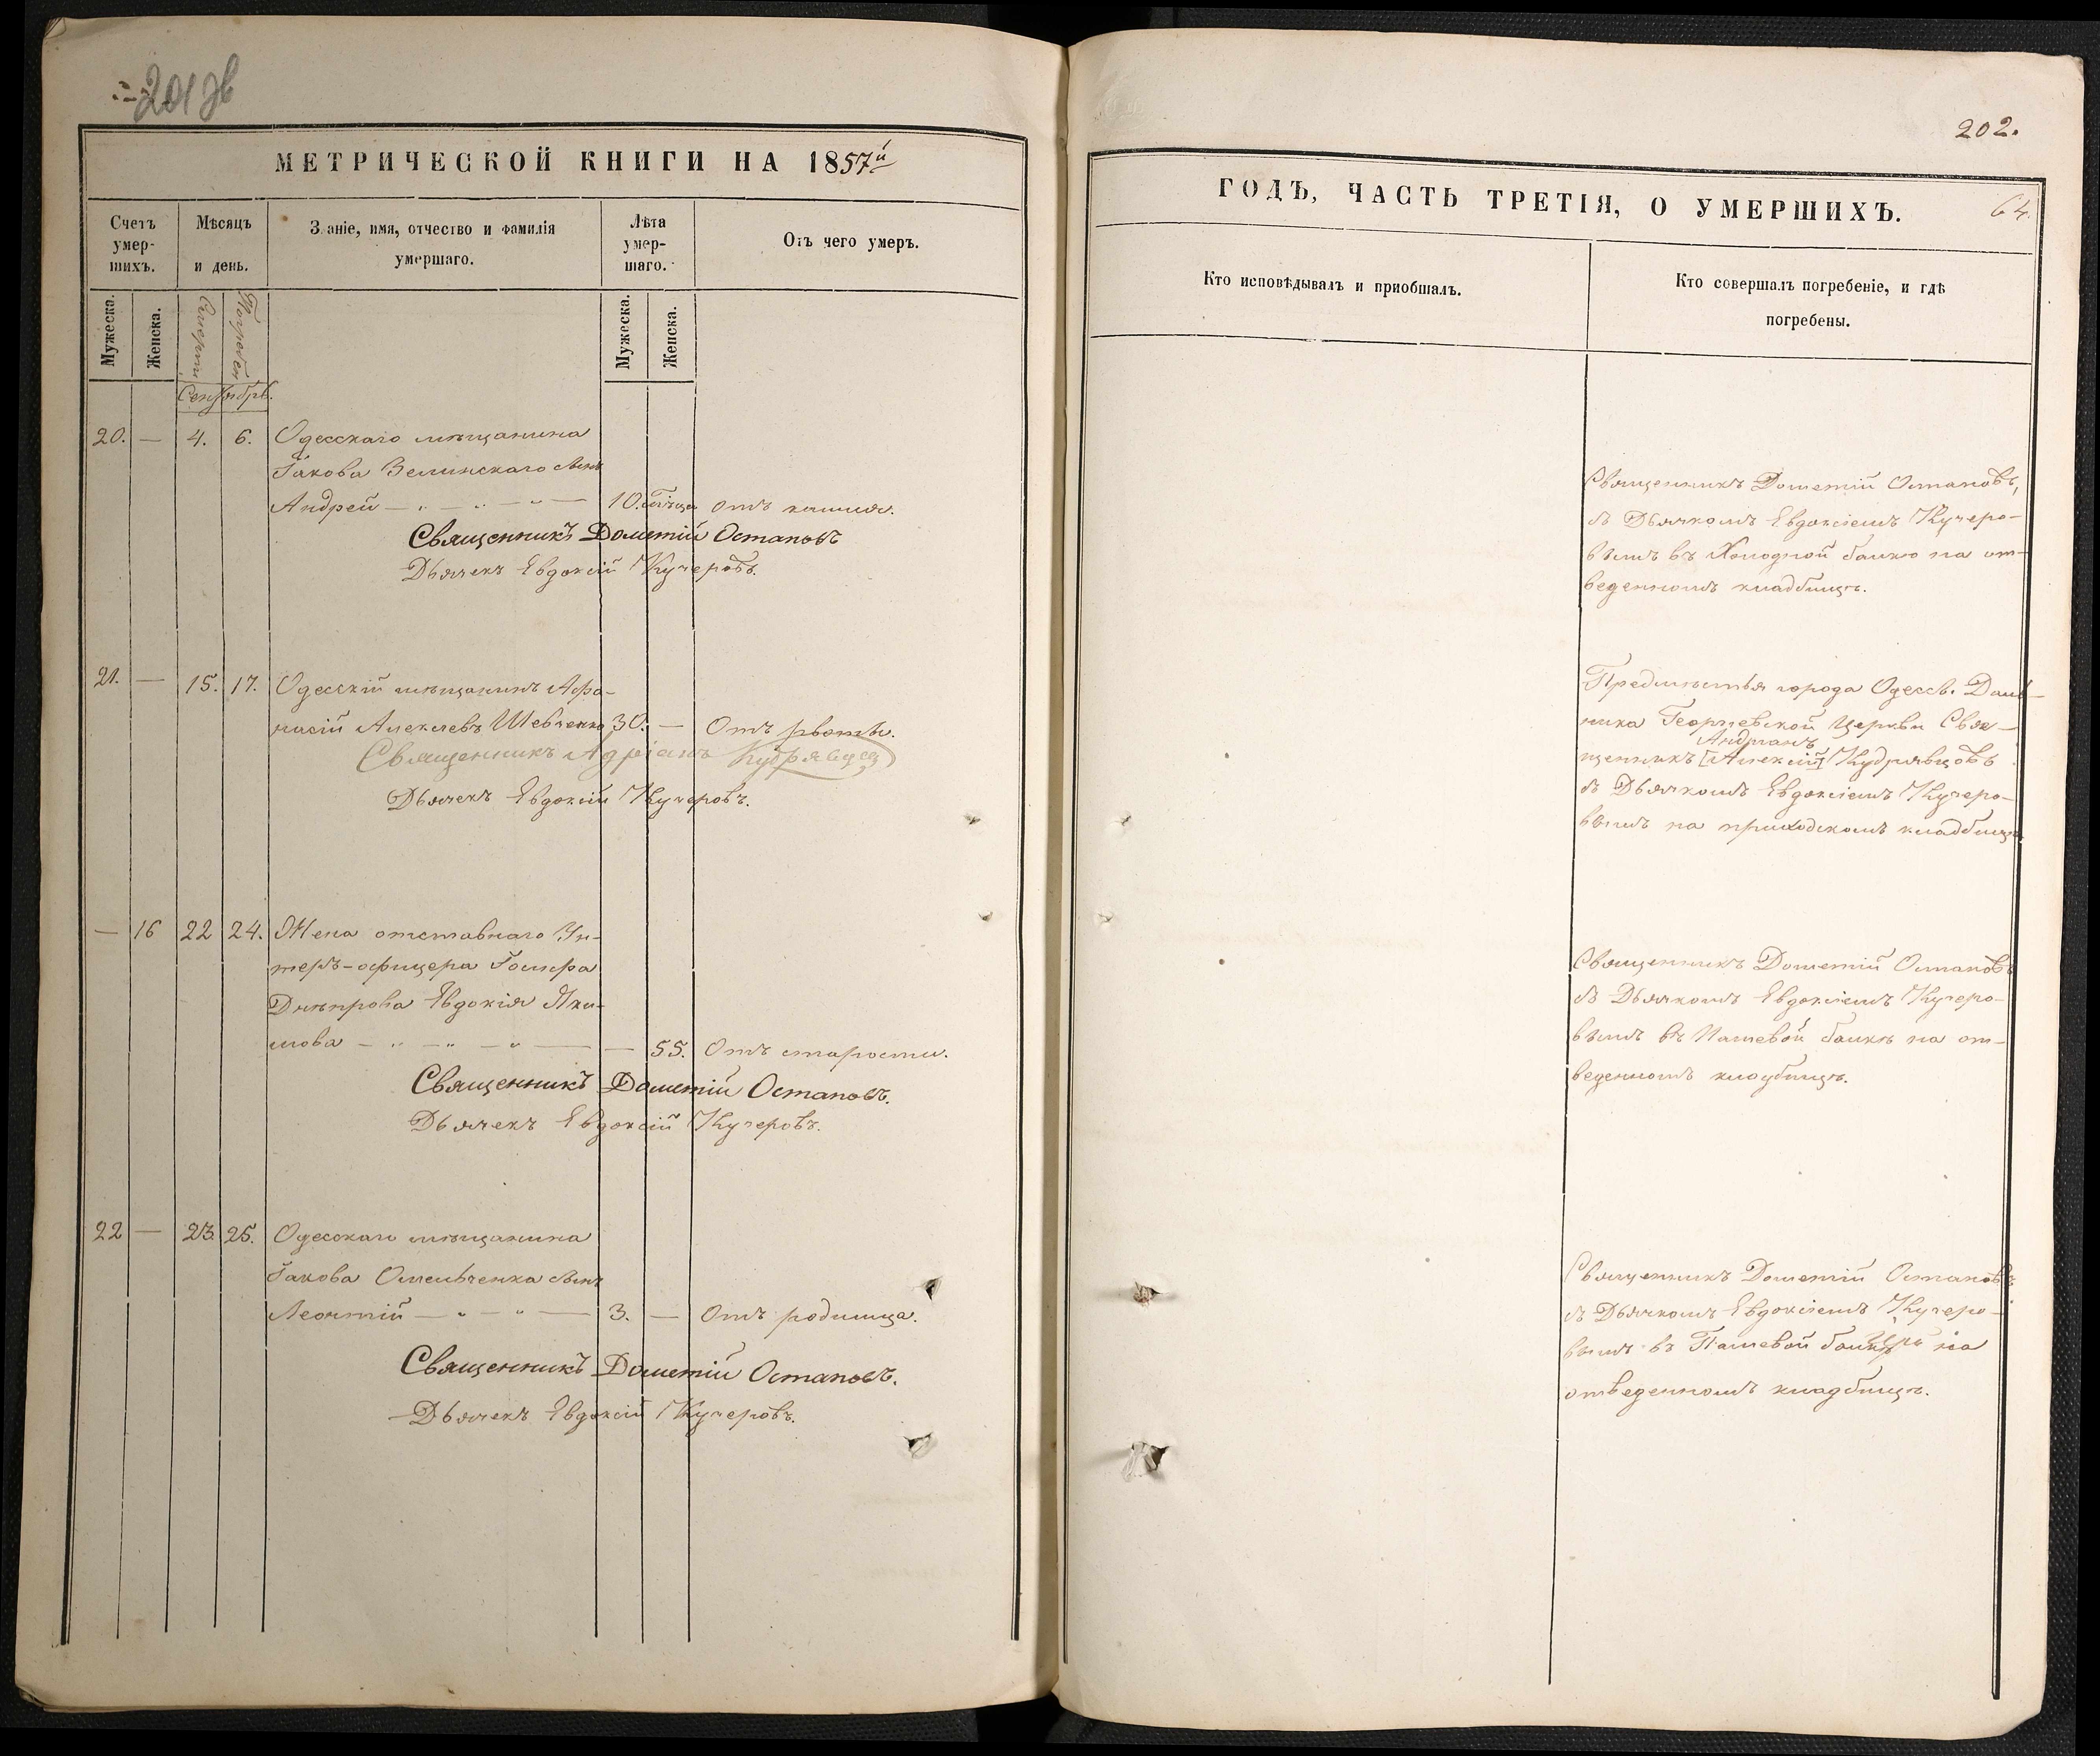 201 об
МЕТРИЧЕСКОЙ КНИГИ НА 1857й
Счетъ умер- шихъ.
Мѣсяцъ и день.
Званіе, имя, отчество и фамилія умершаго.
Лѣта умер- шаго.
Отъ чего умеръ.
Мужеска.
Женска.
Смерти.
Погребен
Мужеска.
Женска.
Сентябрь.
20. — 4. 6. Одесскаго мѣщанина
Іакова Зелинскаго сынъ
Андрей — 10. отъ кашля.
Священникъ Дометій Остаповъ
Дьячекъ Евдокій Кучеровъ.
21. — 15. 17. Одесскій мѣщанинъ Афа-
насій Алексѣевъ Шевченко 30. — Отъ рвоты.
Священникъ Адріанъ Кудрявцев
Дьячекъ Евдокій Кучеровъ.
— 16 22 24. Жена отставнаго Ун-
теръ-офицера Іосифа
Днѣпрова Евдокія Яки-
мова — 55. Отъ старости.
Священникъ Дометій Остаповъ.
Дьячекъ Евдокій Кучеровъ.
22 — 23. 25. Одесскаго мѣщанина
Іакова Омельченка сынъ
Леонтій — 3. — Отъ родимца.
Священникъ Дометій Остаповъ.
Дьячекъ Евдокій Кучеровъ.
202.
ГОДЪ, ЧАСТЬ ТРЕТІЯ, О УМЕРШИХЪ.
64.
Кто исповѣдывалъ и приобщалъ.
Кто совершалъ погребеніе, и гдѣ
погребены.
Священникъ Дометій Остаповъ,
съ Дьячкомъ Евдокіемъ Кучеро-
вымъ въ Холодной балкѣ на от-
веденномъ кладбищѣ.
Предмѣстья города Одессы. Даль-
ника Георгіевской Церкви Свя-
Андріанъ
щенникъ [Алексій] Кудрявцовъ
съ Дьячкомъ Евдокіемъ Кучеро-
вымъ на приходскомъ кладбищѣ.
Священникъ Дометій Остаповъ
съ Дьячкомъ Евдокіемъ Кучеро-
вымъ въ балкѣ на от-
веденномъ кладбищѣ.
Священникъ Дометій Остаповъ
съ Дьячкомъ Евдокіемъ Кучеро-
вымъ въ на
отведенномъ кладбищѣ.